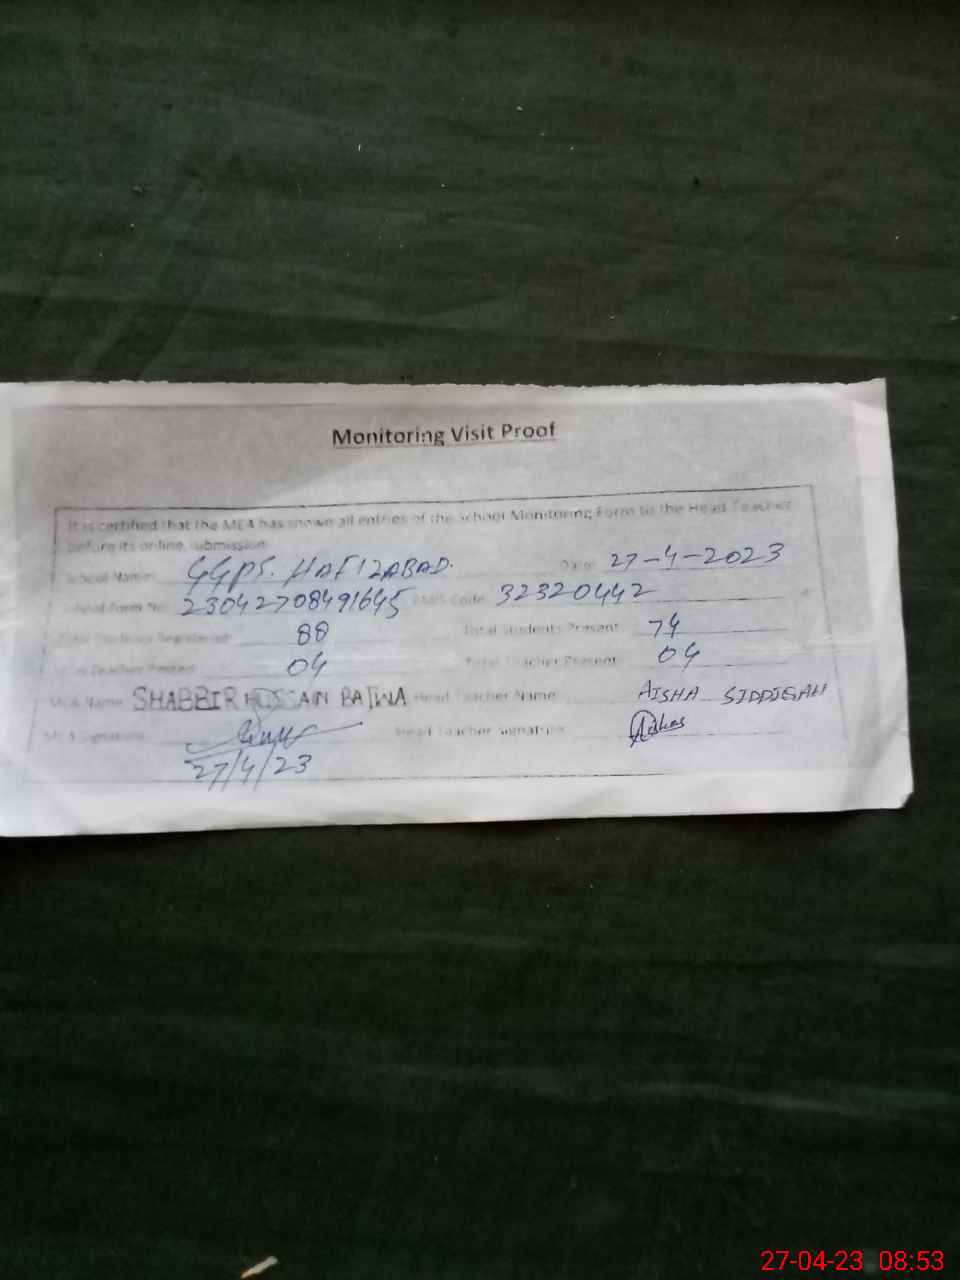 Monitoring Visit Proof
It is certified that the MEA has shown all entries of the School Monitoring Form to the Head Teacher
before its online submission
School Name: GGPS. HAFIZABAD. Date: 27-4-2023
School Form No 23042708491645 EMIS Code 32320442
Total Students Registered 88 Total Students Present 74
Total Teacher Posted 04 Total Teacher Present 04
MEA Name: SHABBIR HUSSAIN BAJWA Head Teacher Name AISHA SIDDIQAH
MEA Signature Head Teacher Signature Aisha
27/4/23
27-04-23 08:53